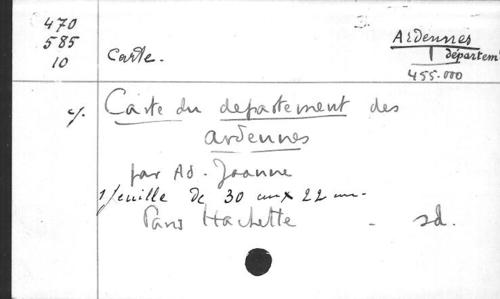 470
585
10
Carte.
Ardennes
département
1
455.000
Carte du departement des
ardennes
par Ad. Joanne
1 feuille de 30 cm x 22 cm.
Paris Hachette - sd.